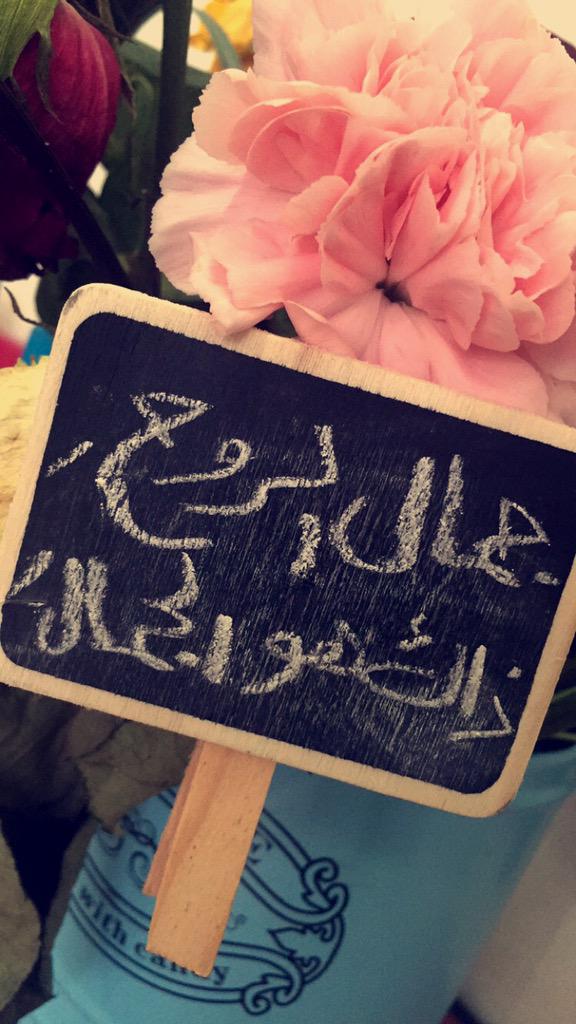 جمال الروح،
ذاك هو الجمالُ
with candy